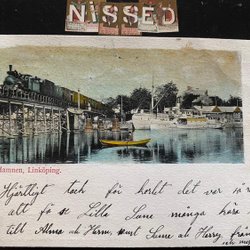 NISSED
Hamnen, Linköping.
Hjärtligt tack för kortet det var så
att få se Lille Sune många hära
till Alma ah Harm, samt Sune ah Harry från